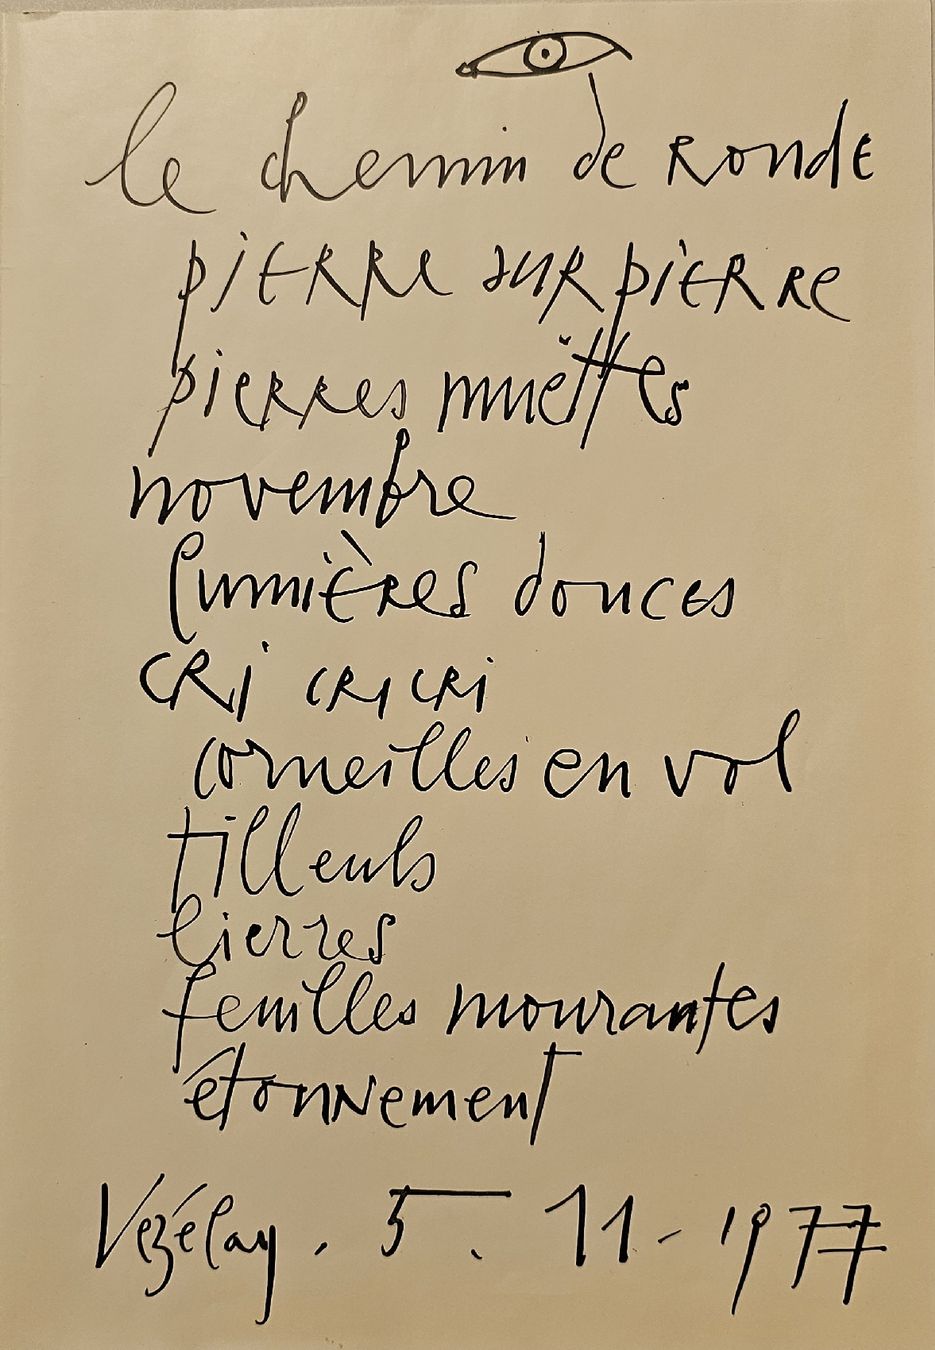 le chemin de Ronde
pierre sur pierre
pierres muëttes
novembre
lumières douces
CRI CRI CRI
corneilles en vol
tilleuls
lierres
feuilles mourantes
étonnement
Vézélay. 5. 11 - 1977